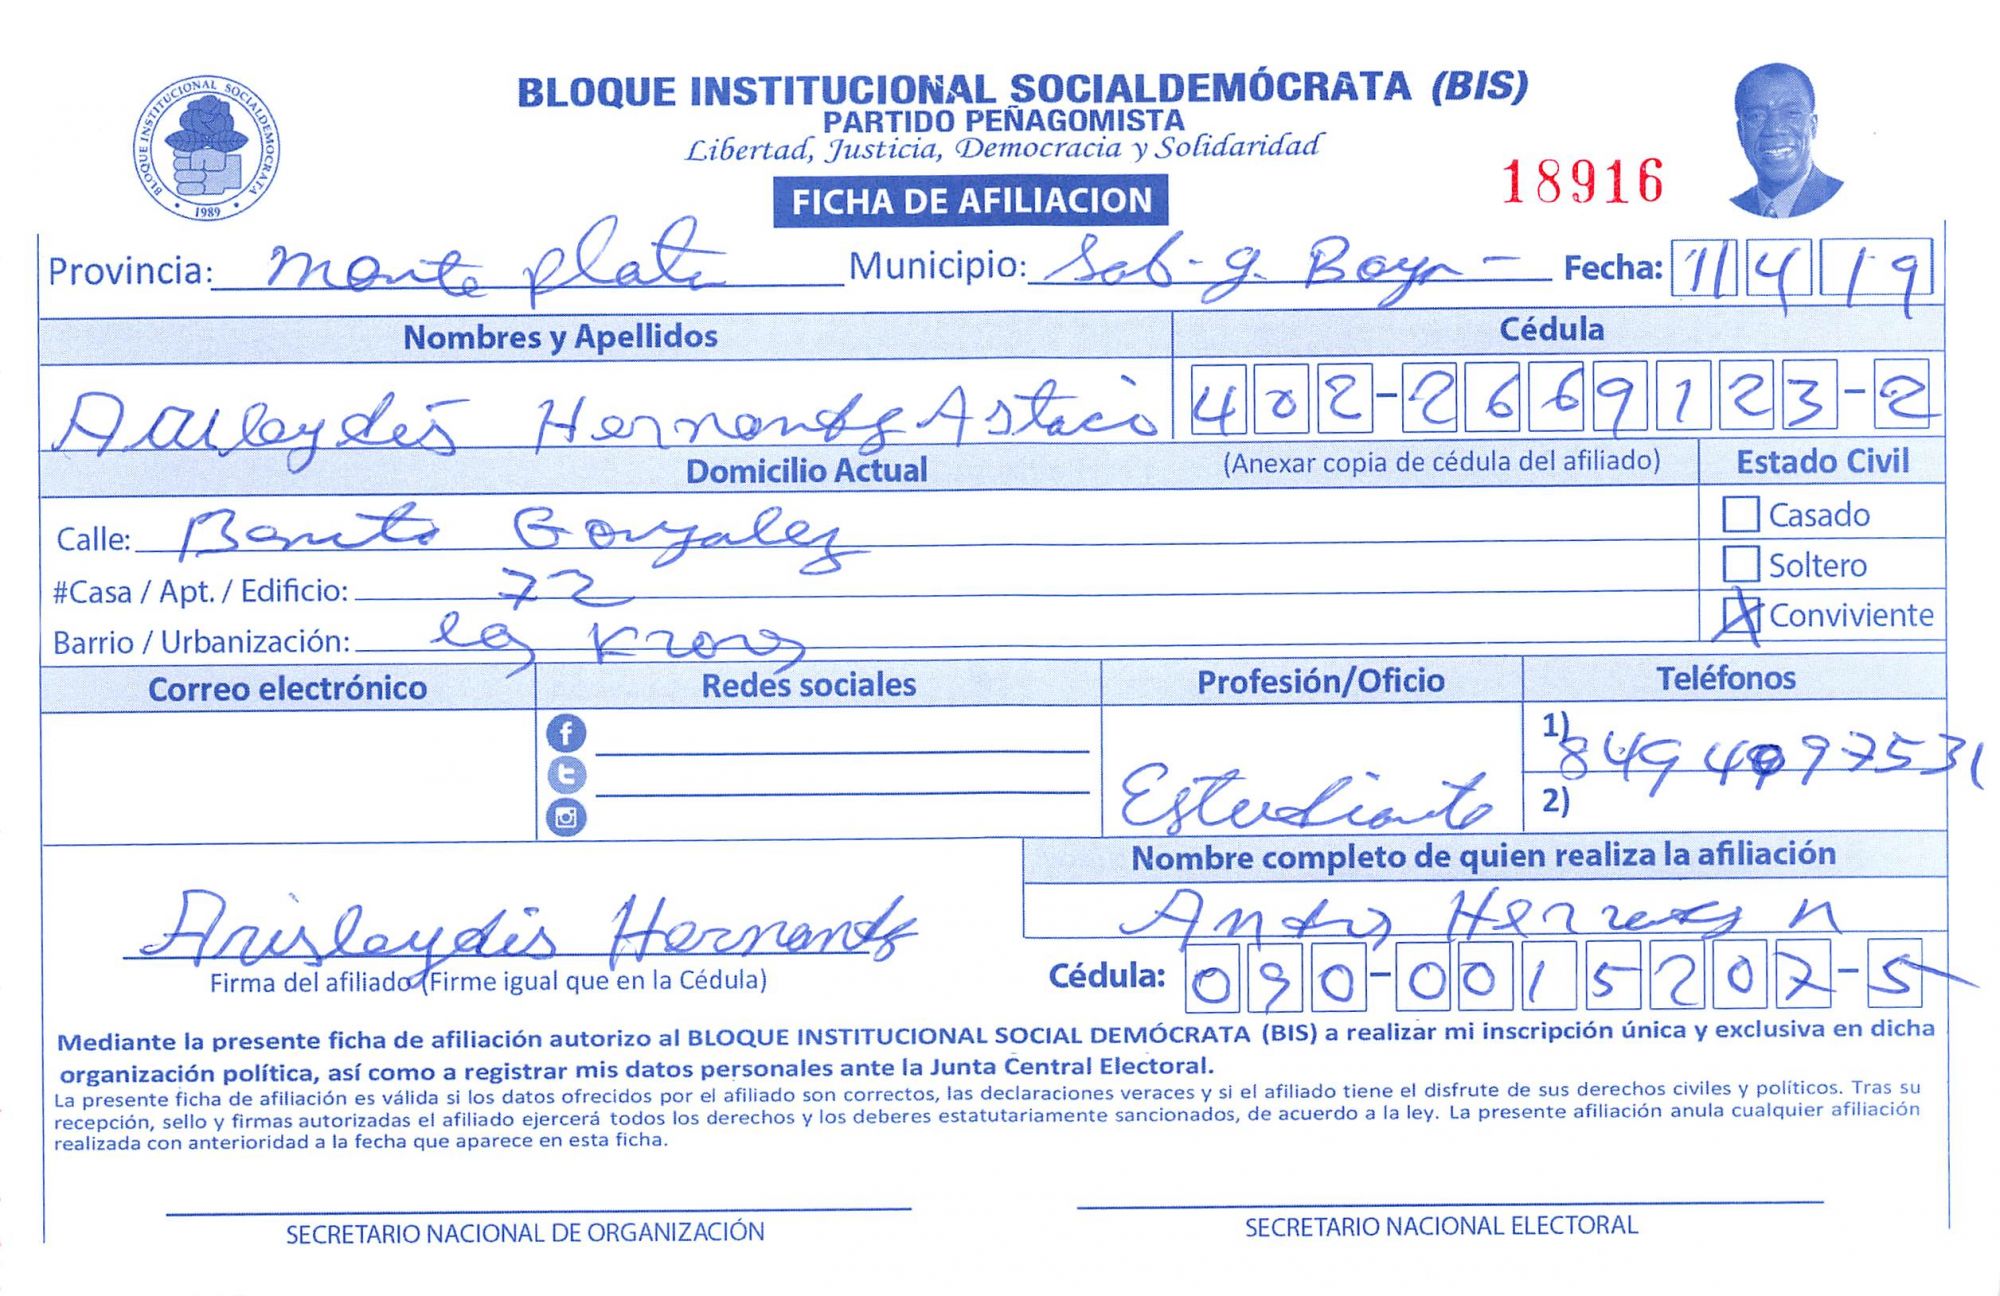 BLOQUE INSTITUCIONAL SOCIALDEMÓCRATA (BIS)
PARTIDO PEÑAGOMISTA
Libertad, Justicia, Democracia y Solidaridad
FICHA DE AFILIACION
18916
BLOQUE INSTITUCIONAL SOCIALDEMOCRATA
1989
Provincia: Monte plata Municipio: Sab. g. Boya Fecha: 11 4 19
Nombres y Apellidos Cédula
Hernandez Astacio 402-2669123-2
Domicilio Actual (Anexar copia de cédula del afiliado) Estado Civil
Calle: Benito Gonzalez
Casado
#Casa / Apt. / Edificio: 72
Soltero
Barrio / Urbanización:
X Conviviente
Correo electrónico Redes sociales Profesión/Oficio Teléfonos
1) 849 4097531
Estudiante
2)
Nombre completo de quien realiza la afiliación
Arisleydis Hernandez
Firma del afiliado (Firme igual que en la Cédula)
Cédula: 090-0015207-5
Mediante la presente ficha de afiliación autorizo al BLOQUE INSTITUCIONAL SOCIAL DEMÓCRATA (BIS) a realizar mi inscripción única y exclusiva en dicha
organización política, así como a registrar mis datos personales ante la Junta Central Electoral.
La presente ficha de afiliación es válida si los datos ofrecidos por el afiliado son correctos, las declaraciones veraces y si el afiliado tiene el disfrute de sus derechos civiles y políticos. Tras su
recepción, sello y firmas autorizadas el afiliado ejercerá todos los derechos y los deberes estatutariamente sancionados, de acuerdo a la ley. La presente afiliación anula cualquier afiliación
realizada con anterioridad a la fecha que aparece en esta ficha.
SECRETARIO NACIONAL DE ORGANIZACIÓN SECRETARIO NACIONAL ELECTORAL